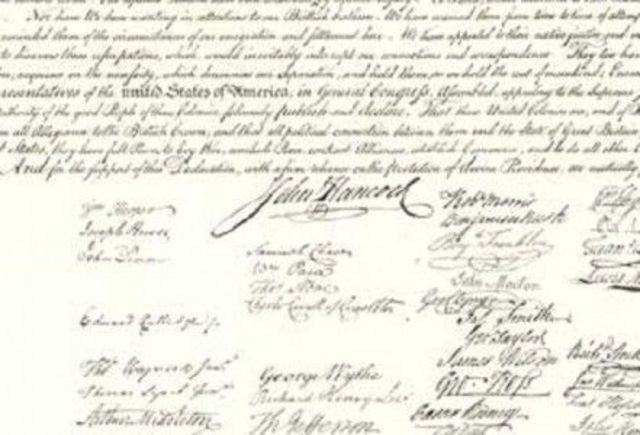 Nor have We been wanting in attentions to our British brethren. We have warned them from time to time of
them of the circumstances of our emigration and settlement here. We have appealed to their native justice and
to disavow these usurpations, which would inevitably interrupt our connections and correspondence. They too
acquiesce in the necessity, which denounces our Separation, and hold them, as we hold the rest of mankind,
resentatives of the united States of America, in General Congress, Assembled, appealing to the Supreme
uthority of the good People of these Colonies, solemnly publish and declare, That these United Colonies are, and
all Allegiance to the British Crown, and that all political connection between them and the State of Great
States, they have full Power to levy War, conclude Peace, contract Alliances, establish Commerce, and to do all other
And for the support of this Declaration, with a firm reliance on the Protection of divine Providence, we mutually
John Hancock
Wm Hooper
Joseph Hewes
John Penn
Edward Rutledge
Thos Heyward Junr.
Thomas Lynch Junr.
Arthur Middleton
Samuel Chase
Wm Paca
Thos Stone
Charles Carroll of Carrollton
George Wythe
Richard Henry Lee
Th Jefferson
Robt Morris
Benjamin Rush
Benj Franklin
John Morton
Geo Clymer
Jas Smith
Geo Taylor
James Wilson
Geo Ross
Caesar Rodney